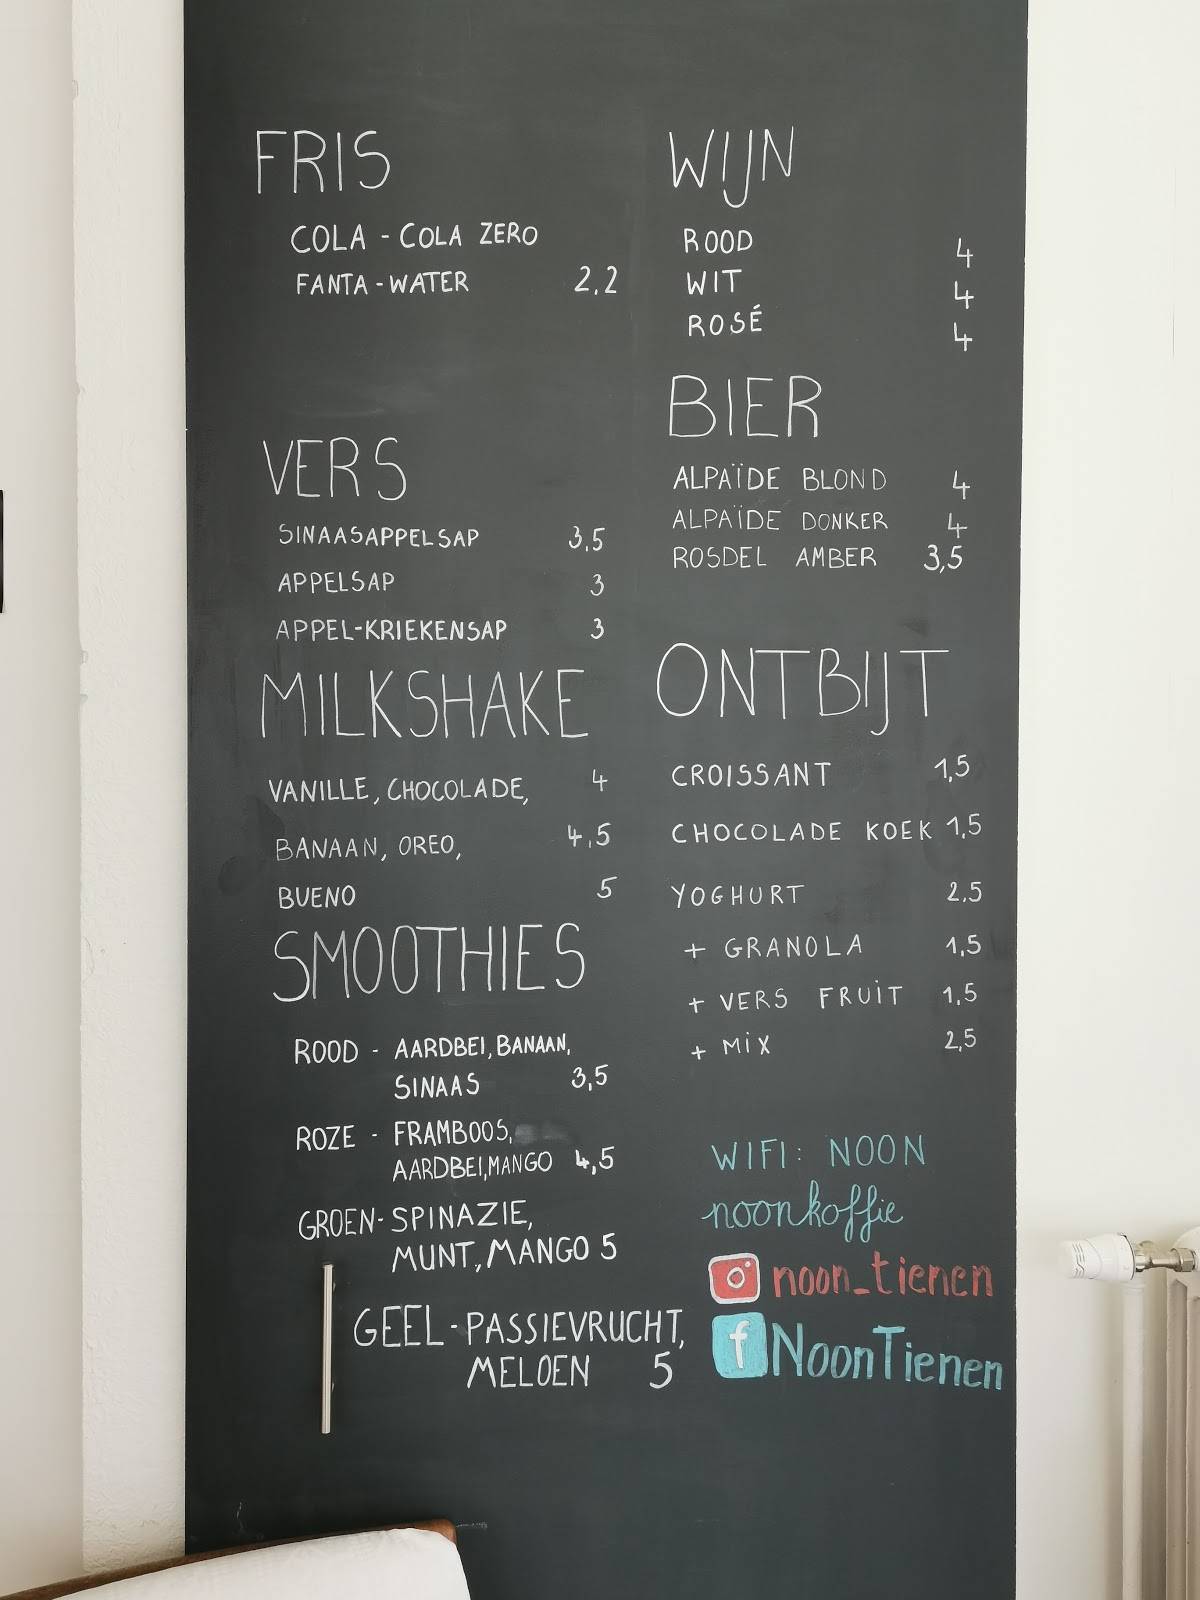 FRIS
COLA - COLA ZERO
FANTA - WATER 2,2
VERS
SINAASAPPELSAP 3,5
APPELSAP 3
APPEL-KRIEKENSAP 3
MILKSHAKE
VANILLE, CHOCOLADE, 4
BANAAN, OREO, 4,5
BUENO 5
SMOOTHIES
ROOD - AARDBEI, BANAAN,
SINAAS 3,5
ROZE - FRAMBOOS,
AARDBEI, MANGO 4,5
GROEN - SPINAZIE,
MUNT, MANGO 5
GEEL - PASSIEVRUCHT,
MELOEN 5
WIJN
ROOD 4
WIT 4
ROSÉ 4
BIER
ALPAÏDE BLOND 4
ALPAÏDE DONKER 4
ROSDEL AMBER 3,5
ONTBIJT
CROISSANT 1,5
CHOCOLADE KOEK 1,5
YOGHURT 2.5
+ GRANOLA 1,5
+ VERS FRUIT 1,5
+ MIX 2,5
WIFI: NOON
noonkoffie
noon_tienen
f NoonTienen